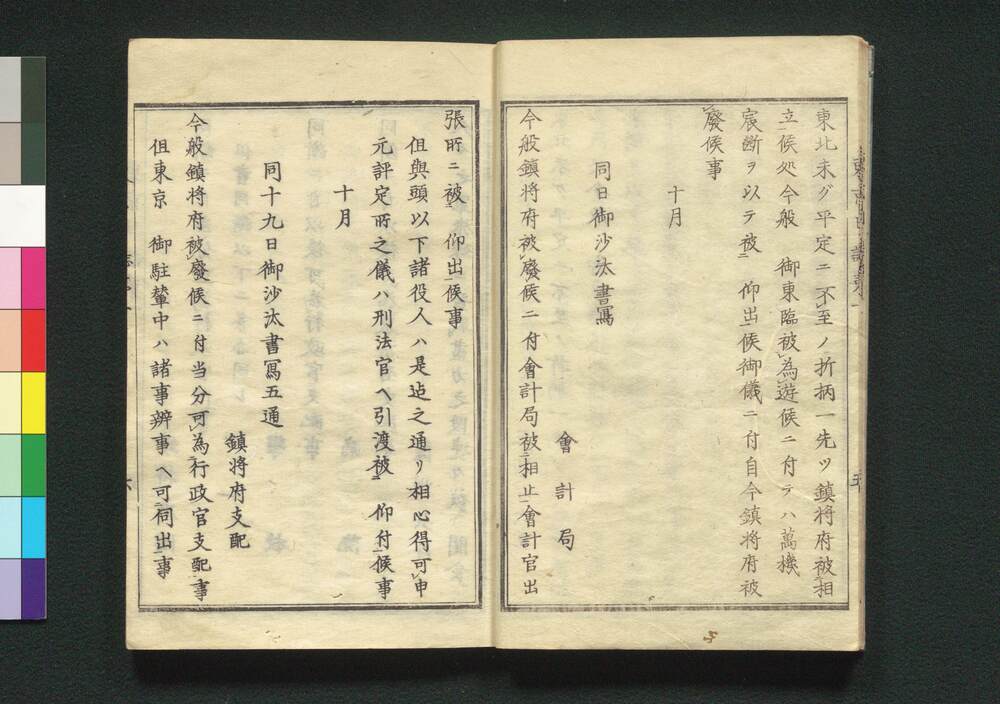 東北未グ平定ニ不至ノ折柄一先ツ鎮将府被相
立候処今般　御東臨被為遊候ニ付テハ萬機
宸断ヲ以テ被　仰出候御儀ニ付自今鎮将府被
廢候事
十月
同日御沙汰書寫
會計局
今般鎮将府被廢候ニ付會計局被相止會計官出
張所ニ被　仰出候事
但與頭以下諸役人ハ是迠之通リ相心得可申
元評定所之儀ハ刑法官ヘ引渡被　仰付候事
十月
同十九日御沙汰書寫五通
鎮将府支配
今般鎮将府被廢候ニ付当分可為行政官支配事
但東京　御駐輦中ハ諸事辨事ヘ可伺出事